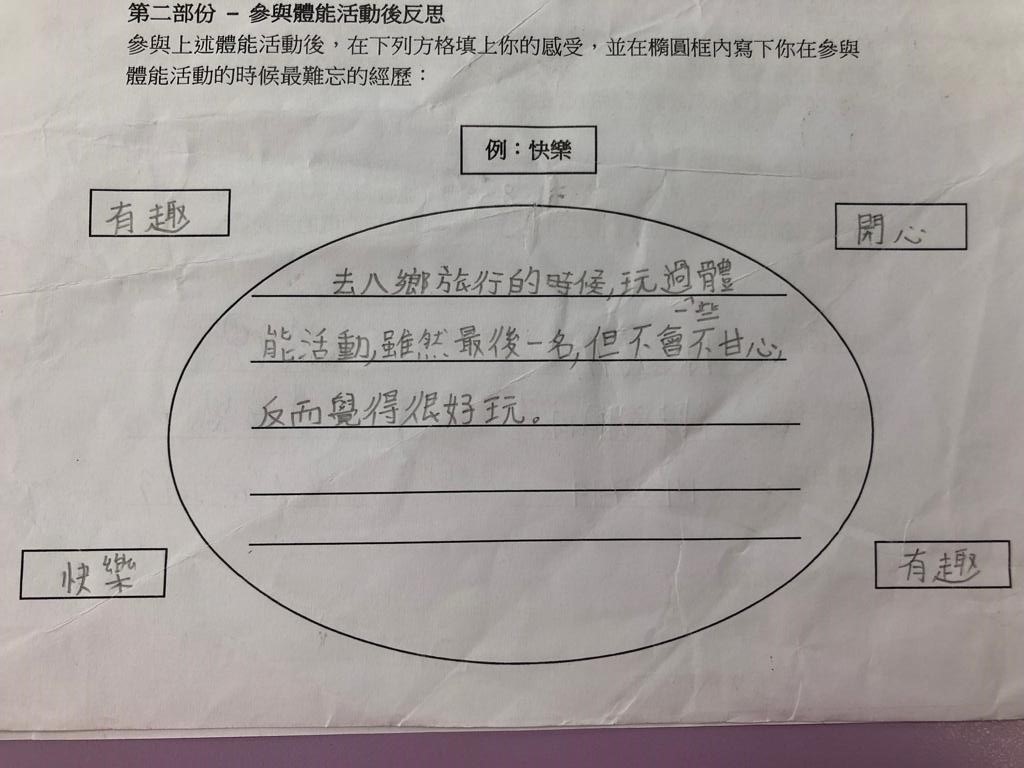 第二部份 – 參與體能活動後反思
參與上述體能活動後，在下列方格填上你的感受，並在橢圓框內寫下你在參與
體能活動的時候最難忘的經歷：
例：快樂
有趣
開心
去八鄉旅行的時候,玩過體
一些
能活動,雖然最後一名,但不會不甘心,
反而覺得很好玩。
快樂
有趣